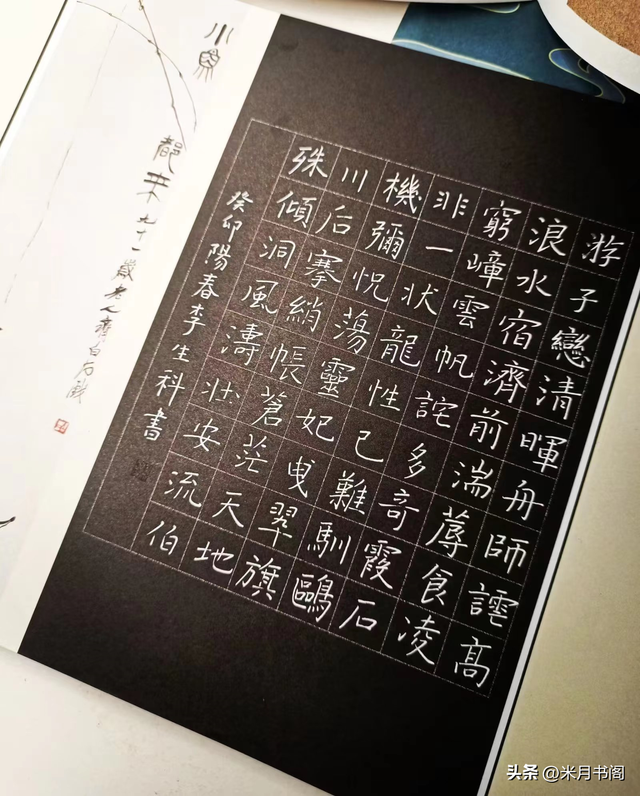 游子戀清暉舟師高
浪水宿濟前湍蓐食凌
窮嶂雲帆詫多奇霞石
非一状龍性已難馴鷗
機彌怳蕩靈妃曳翠旗
川后搴綃帳蒼茫天地
殊傾洞風濤壯安流伯
癸卯陽春李生科書
小魚
都來九十一歲老人齊白石戲
头条 @米月书阁